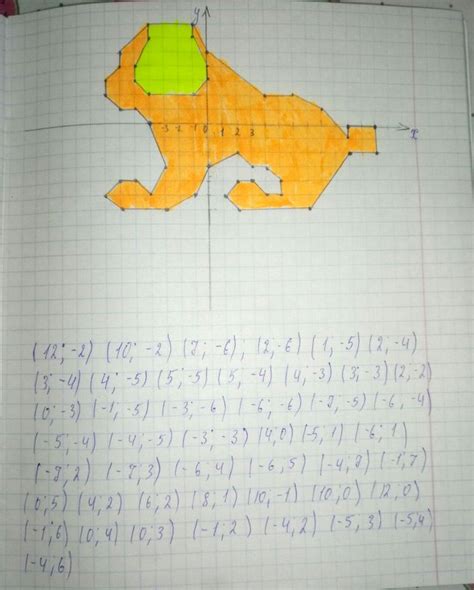 y
-3 -2 -1 0 1 2 3
x
(12; -2) (10; -2) (7; -6); (2,-6) (1, -5) (2; -4)
(3; -4) (4; -5) (5; -5) (5, -4) (4; -3) (3; -3) (2,-2)
(0; -3) (-1, -5) (-3; -6) (-6; -6) (-7, -5) (-6, -4)
(-5; -4) (-4; -5) (-3; -3) (4,0) (-5, 1) (-6; 1)
(-7; 2) (-7, 3) (-6, 4) (-6,5) (-4,7) (-1,7)
(0;5) (4,2) (6,2) (8;1) (10,-1) (10,0) (12,0)
(-1;6) (0;4) (0;3) (-1;2) (-4,2) (-5,3) (-5,4)
(-4;6)